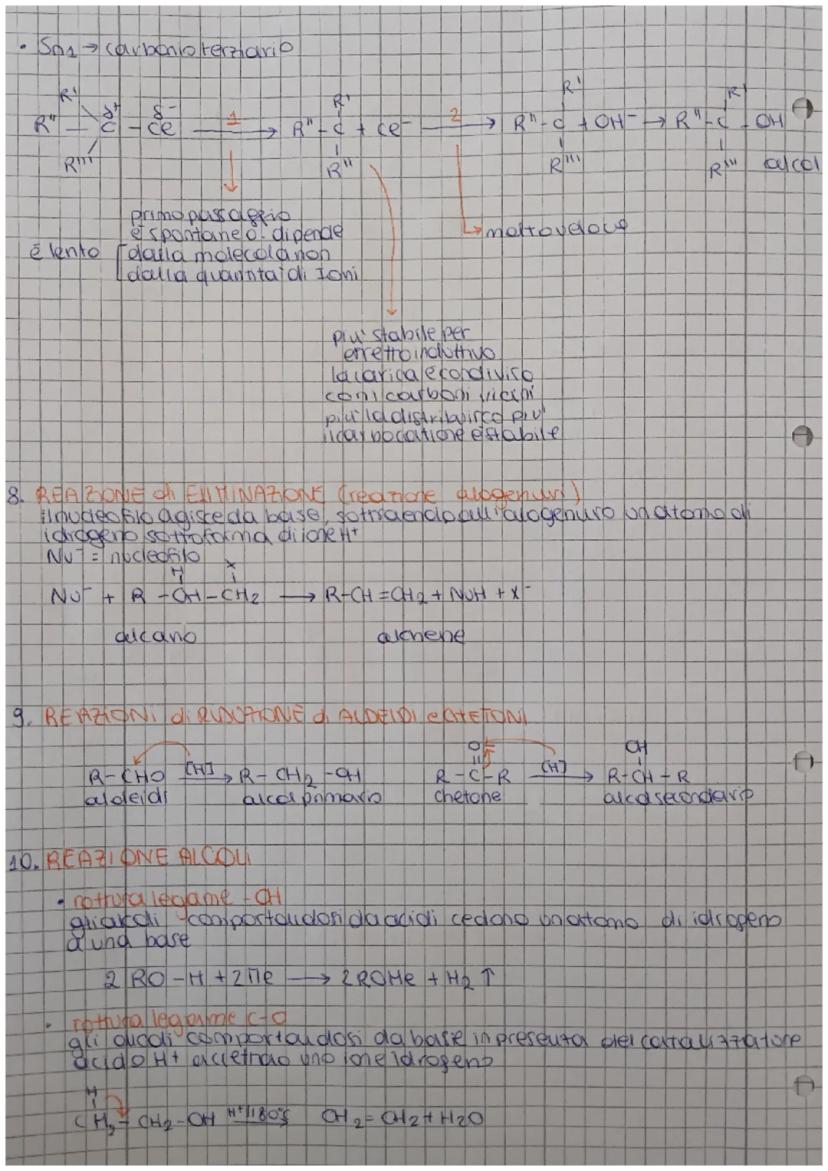 • Sn1 → carbonio terziario
R' R' R' R'
R'' – C δ+ – Ce δ- —1→ R'' – C + Ce- —2→ R'' – C + OH- → R'' – C – OH
R''' R'' R''' R''' alcol
primo passaggio
è spontaneo: dipende
è lento dalla molecola non
dalla quantità di Ioni
→ molto veloce
più stabile per
effetto induttivo
la carica è condiviso
con i carboni vicini
più la distribuisco più
il carbocatione è stabile
8. REAZIONE di ELIMINAZIONE (reazione alogenuri)
il nucleofilo agisce da base, sottraendo all'alogenuro un atomo di
idrogeno sottoforma di ione H+
Nu- = nucleofilo
H X
Nu- + R – CH – CH2 → R-CH = CH2 + NuH + X-
alcano alchene
9. REAZIONI di RIDUZIONE di ALDEIDI e CHETONI
O OH
R – CHO [H]→ R – CH2 – OH R – C – R [H]→ R – CH – R
aldeidi alcol primario chetone alcol secondario
10. REAZIONE ALCOLI
• rottura legame - OH
gli alcoli comportandosi da acidi cedono un atomo di idrogeno
a una base
2 RO – H + 2Me → 2ROMe + H2 ↑
• rottura legame C-O
gli alcoli comportandosi da base in presenza del catalizzatore
acido H+ accettano uno ione idrogeno
H
CH2 – CH2 – OH H+/180° CH2 = CH2 + H2O